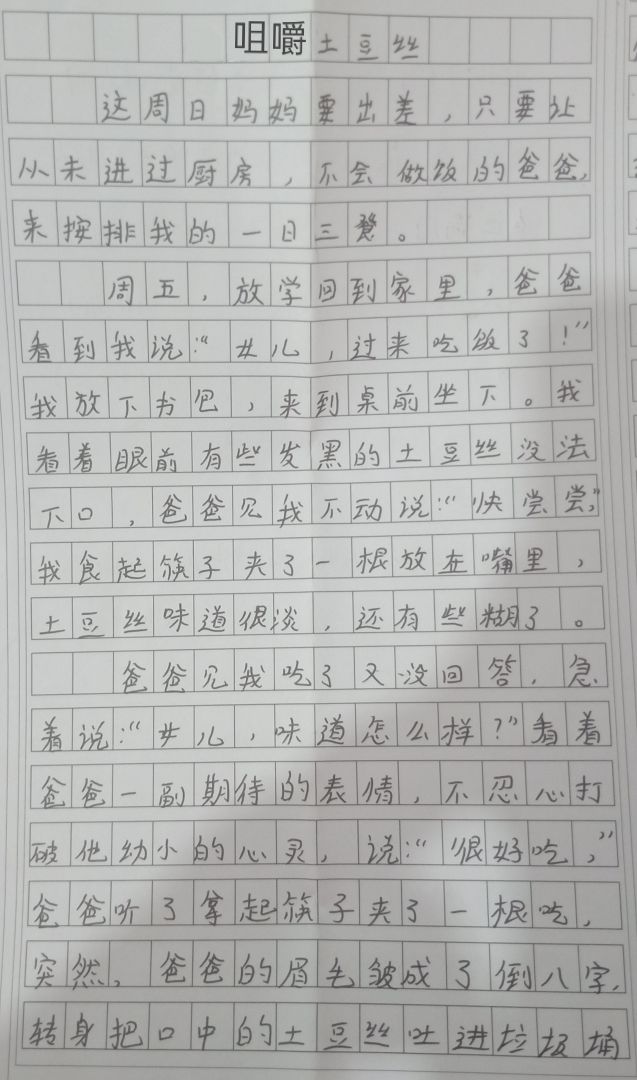 咀嚼土豆丝
这周日妈妈要出差，只要让
从未进过厨房，不会做饭的爸爸，
来按排我的一日三餐。
周五，放学回到家里，爸爸
看到我说：“女儿，过来吃饭了！”
我放下书包，来到桌前坐下。我
看着眼前有些发黑的土豆丝没法
下口，爸爸见我不动说：“快尝尝，”
我食起筷子夹了一根放在嘴里，
土豆丝味道很淡，还有些糊了。
爸爸见我吃了又没回答，急
着说：“女儿，味道怎么样？”看着
爸爸一副期待的表情，不忍心打
破他幼小的心灵，说：“很好吃，”
爸爸听了拿起筷子夹了一根吃，
突然，爸爸的眉毛皱成了倒八字，
转身把口中的土豆丝吐进垃圾桶